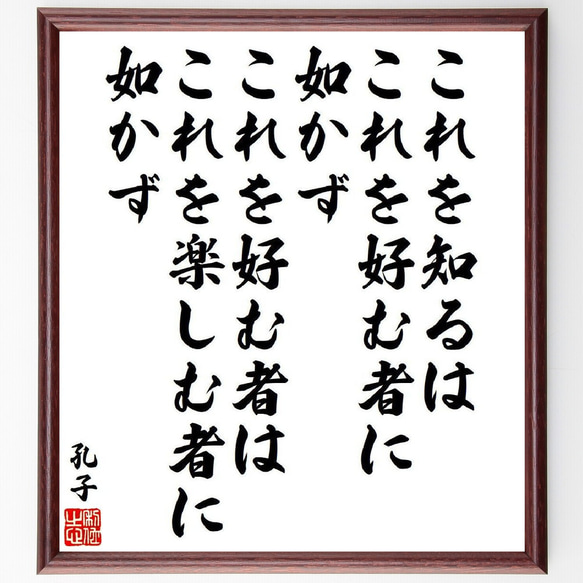 これを知るは
これを好む者に
如かず
これを好む者は
これを楽しむ者に
如かず
孔子